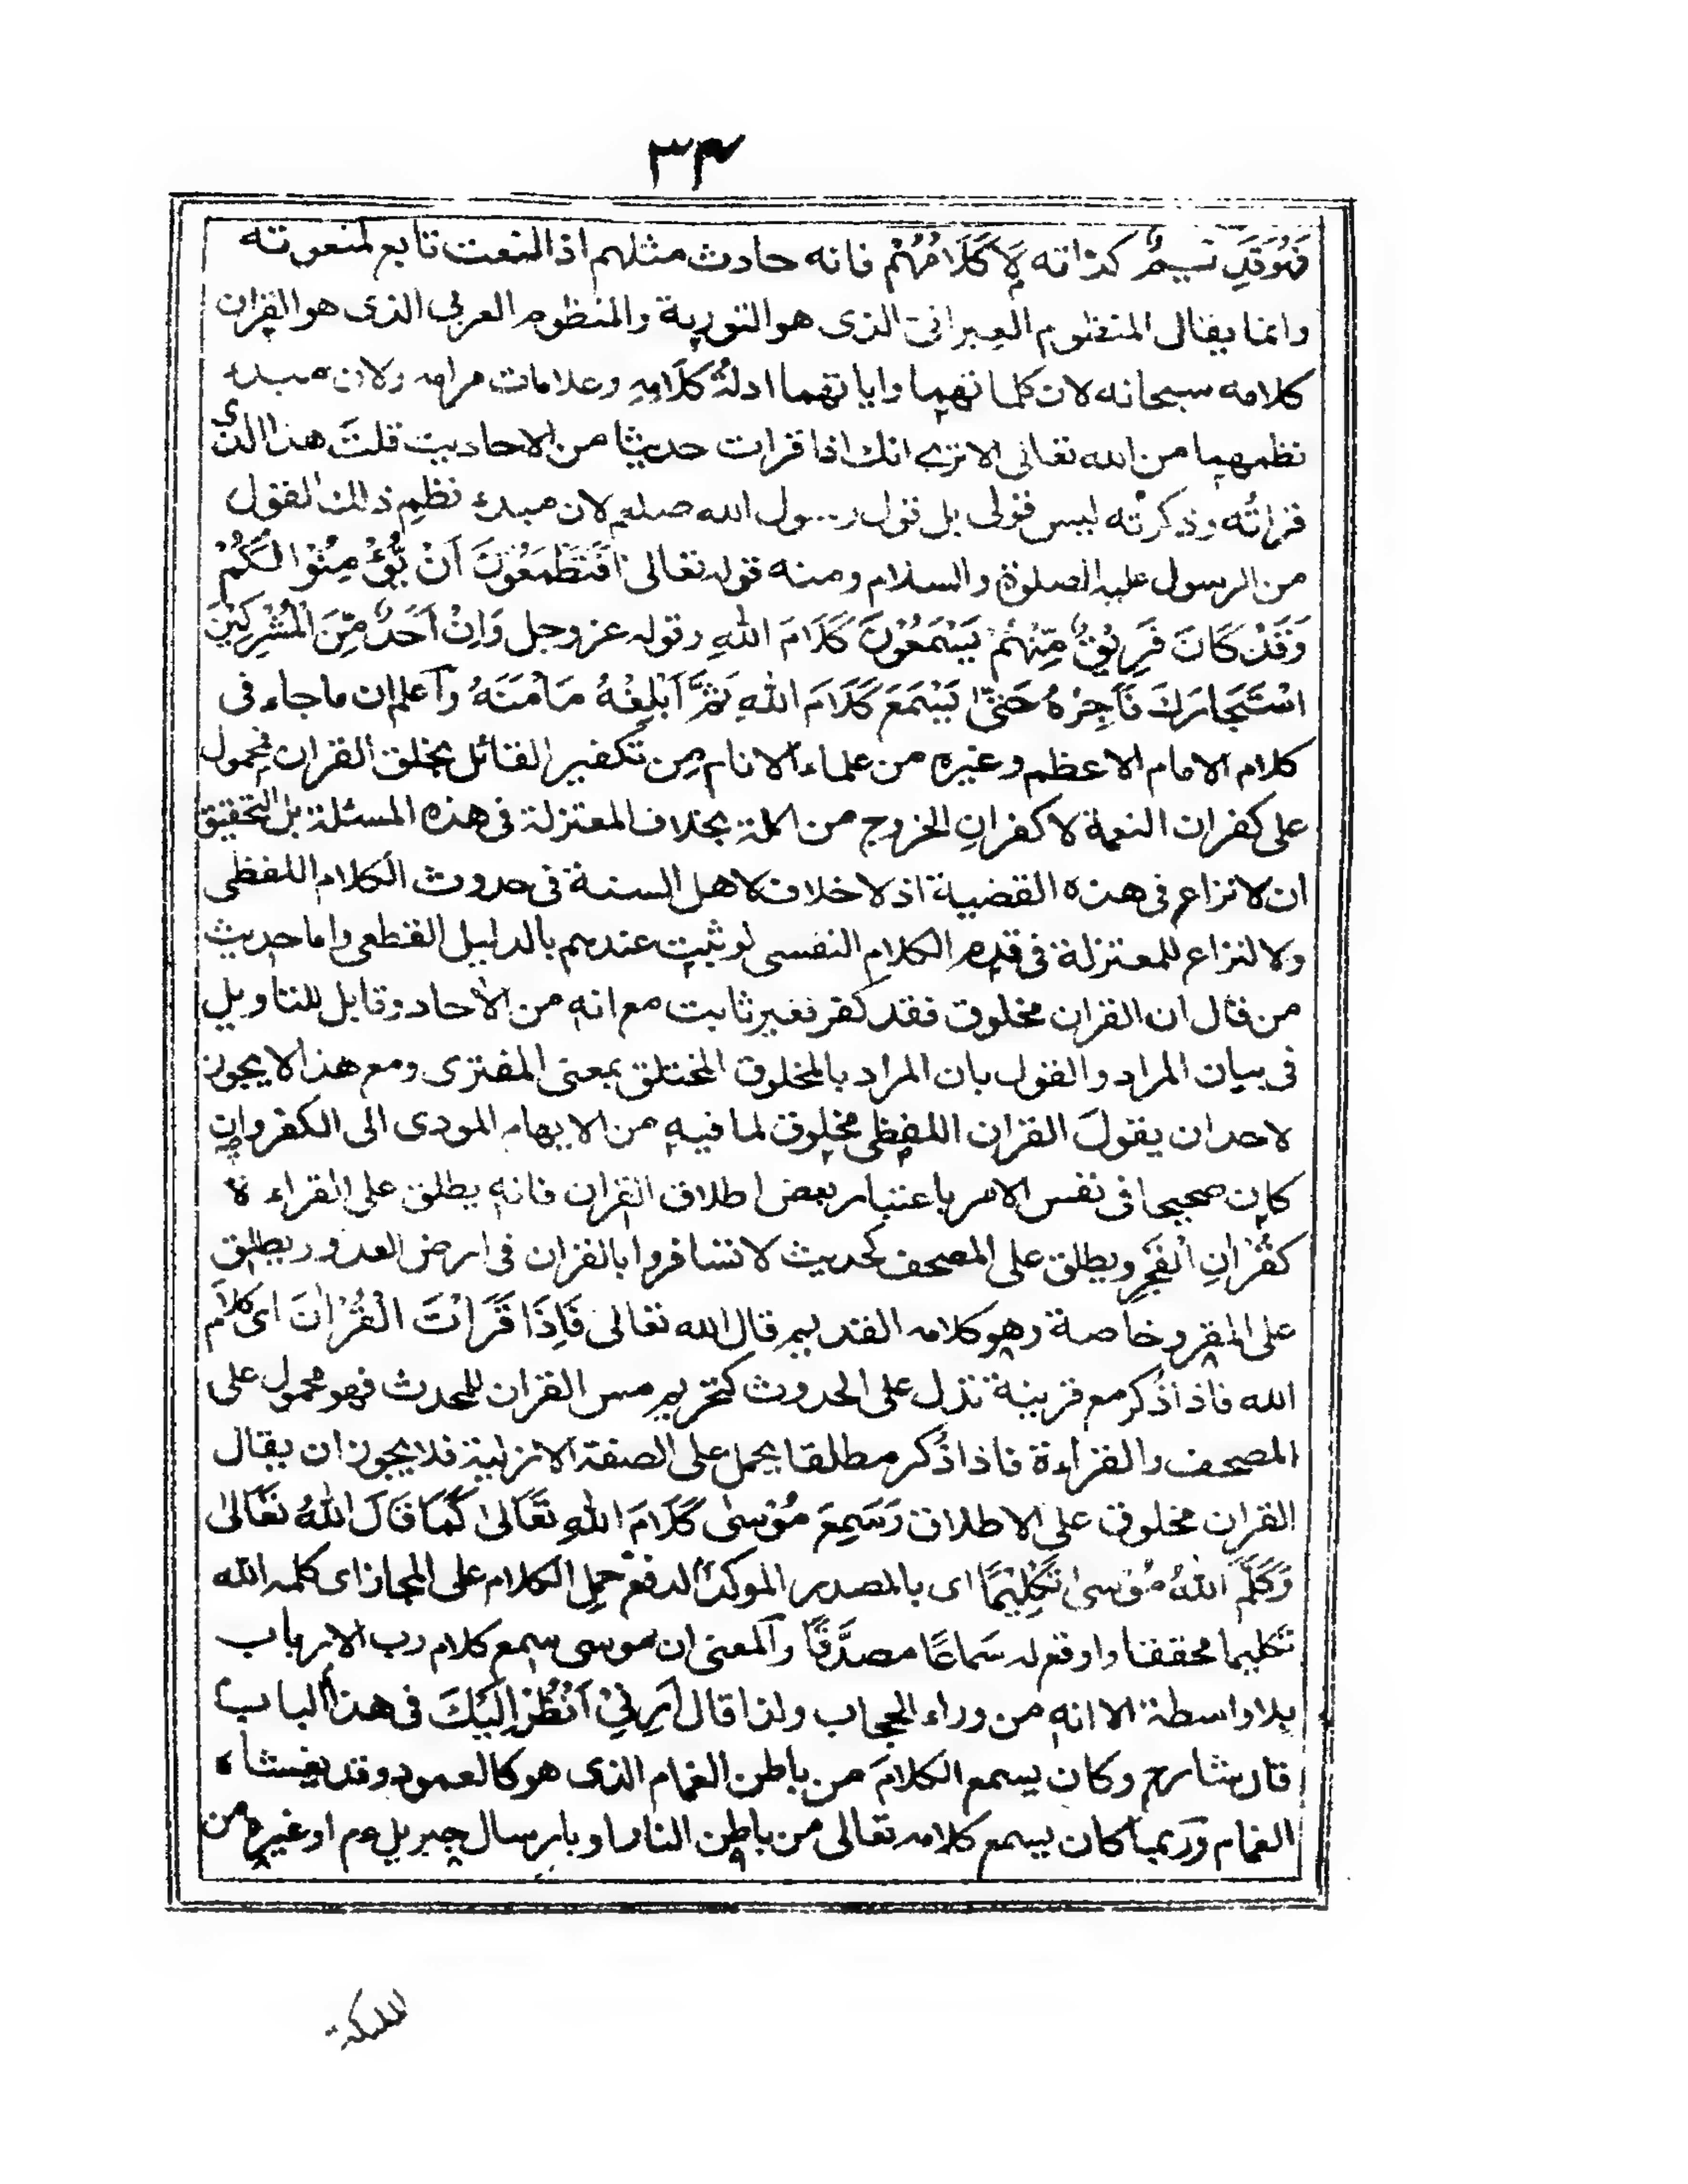 ٣٤
فَهُوَ قَدِيْمٌ كذاته لَا كَلَامُهُمْ فانه حادث مثلهم اذ النعت تابع لمنعوته
وانما يقال المنظوم العبرانى الذى هو التورية والمنظوم العربى الذى هو القران
كلامه سبحانه لان كلماتهما واياتهما ادلةُ كَلَامِهِ وعلامات مرامه ولان مبدء
نظمهما من الله تعالى الا ترى انك اذا قرات حديثا من الاحاديث قلتَ هذا الذى
قراتُه وذكرته ليس قولى بل قول رسول الله صلعم لان مبدء نظمِ ذلك القول
من الرسول عليه الصلوة والسلام ومنه قوله تعالى اَفَتَطْمَعُوْنَ اَنْ يُّؤْمِنُوْا لَكُمْ
وَقَدْ كَانَ فَرِيْقٌ مِّنْهُمْ يَسْمَعُوْنَ كَلَامَ اللهِ وقوله عز وجل وَاِنْ اَحَدٌ مِّنَ الْمُشْرِكِيْنَ
اسْتَجَارَكَ فَاَجِرْهُ حَتّٰى يَسْمَعَ كَلَامَ اللهِ ثُمَّ اَبْلِغْهُ مَاْمَنَهُ وآعلم ان ما جاء فى
كلام الامام الاعظم وغيره من علماء الانام من تكفير القائل بخلق القران فمحمول
على كفران النعمة لا كفرانِ الخروج من الملة بخلاف المعتزلة فى هذه المسئلة بل التحقيق
ان لا نزاع فى هذه القضية اذ لا خلاف لاهل السنة فى حدوث الكلام اللفظى
ولا لنزاع للمعتزلة فى قدم الكلام النفسى لو ثبت عندهم بالدليل القطعى واما حديث
من قال ان القران مخلوق فقد كفر فغير ثابت مع انه من الأحاد وقابل للتاويل
فى بيان المراد والقول بان المراد بالمخلوق المختلق بمعنى المفترى ومع هذا لا يجوز
لاحد ان يقولَ القران اللفظى مخلوق لما فيه من الايهام المودى الى الكفر وان
كان صحيحا فى نفس الامر باعتبار بعض اطلاق القران فانه يطلق على القراءة
كقُرْاٰنِ الْفَجْرِ ويطلق على المصحف كحديث لا تسافروا بالقران فى ارض العدو ويطلق
على المقرو خاصة وهو كلامه القديم قال الله تعالى فَاِذَا قَرَاْتَ الْقُرْاٰنَ اى كلامَ
الله فاذا ذُكر مع قرينة تدل على الحدوث كتحريم مس القران للمحدث فهو محمول على
المصحف والقراءة فاذا ذُكر مطلقا يحمل على الصفة الازلية فلا يجوز ان يقال
القران مخلوق على الاطلاق وَسَمِعَ مُوْسٰى كَلَامَ اللهِ تَعَالٰى كَمَا قَالَ اللهُ تَعَالٰى
وَكَلَّمَ اللهُ مُوْسٰى تَكْلِيْمًا اى بالمصدر الموكد لدفع حمل الكلام على المجاز اى كلمه الله
تكليما محققا واوقع له سَمَاعًا مصدَّقًا وآلمعنى ان موسى سمع كلام رب الارباب
بلا واسطة الا انه من وراء الحجاب ولذا قال اَرِنِيْ اَنْظُرْ اِلَيْكَ فى هذا الباب
قال شارح وكان يسمع الكلامَ من باطن الغمام الذى هو كالعمود وقد يغشاه
الغمام وَربما كان يسمع كلامه تعالى من باطن النار او بارسال جبريل ءم او غيره من
الملئكة